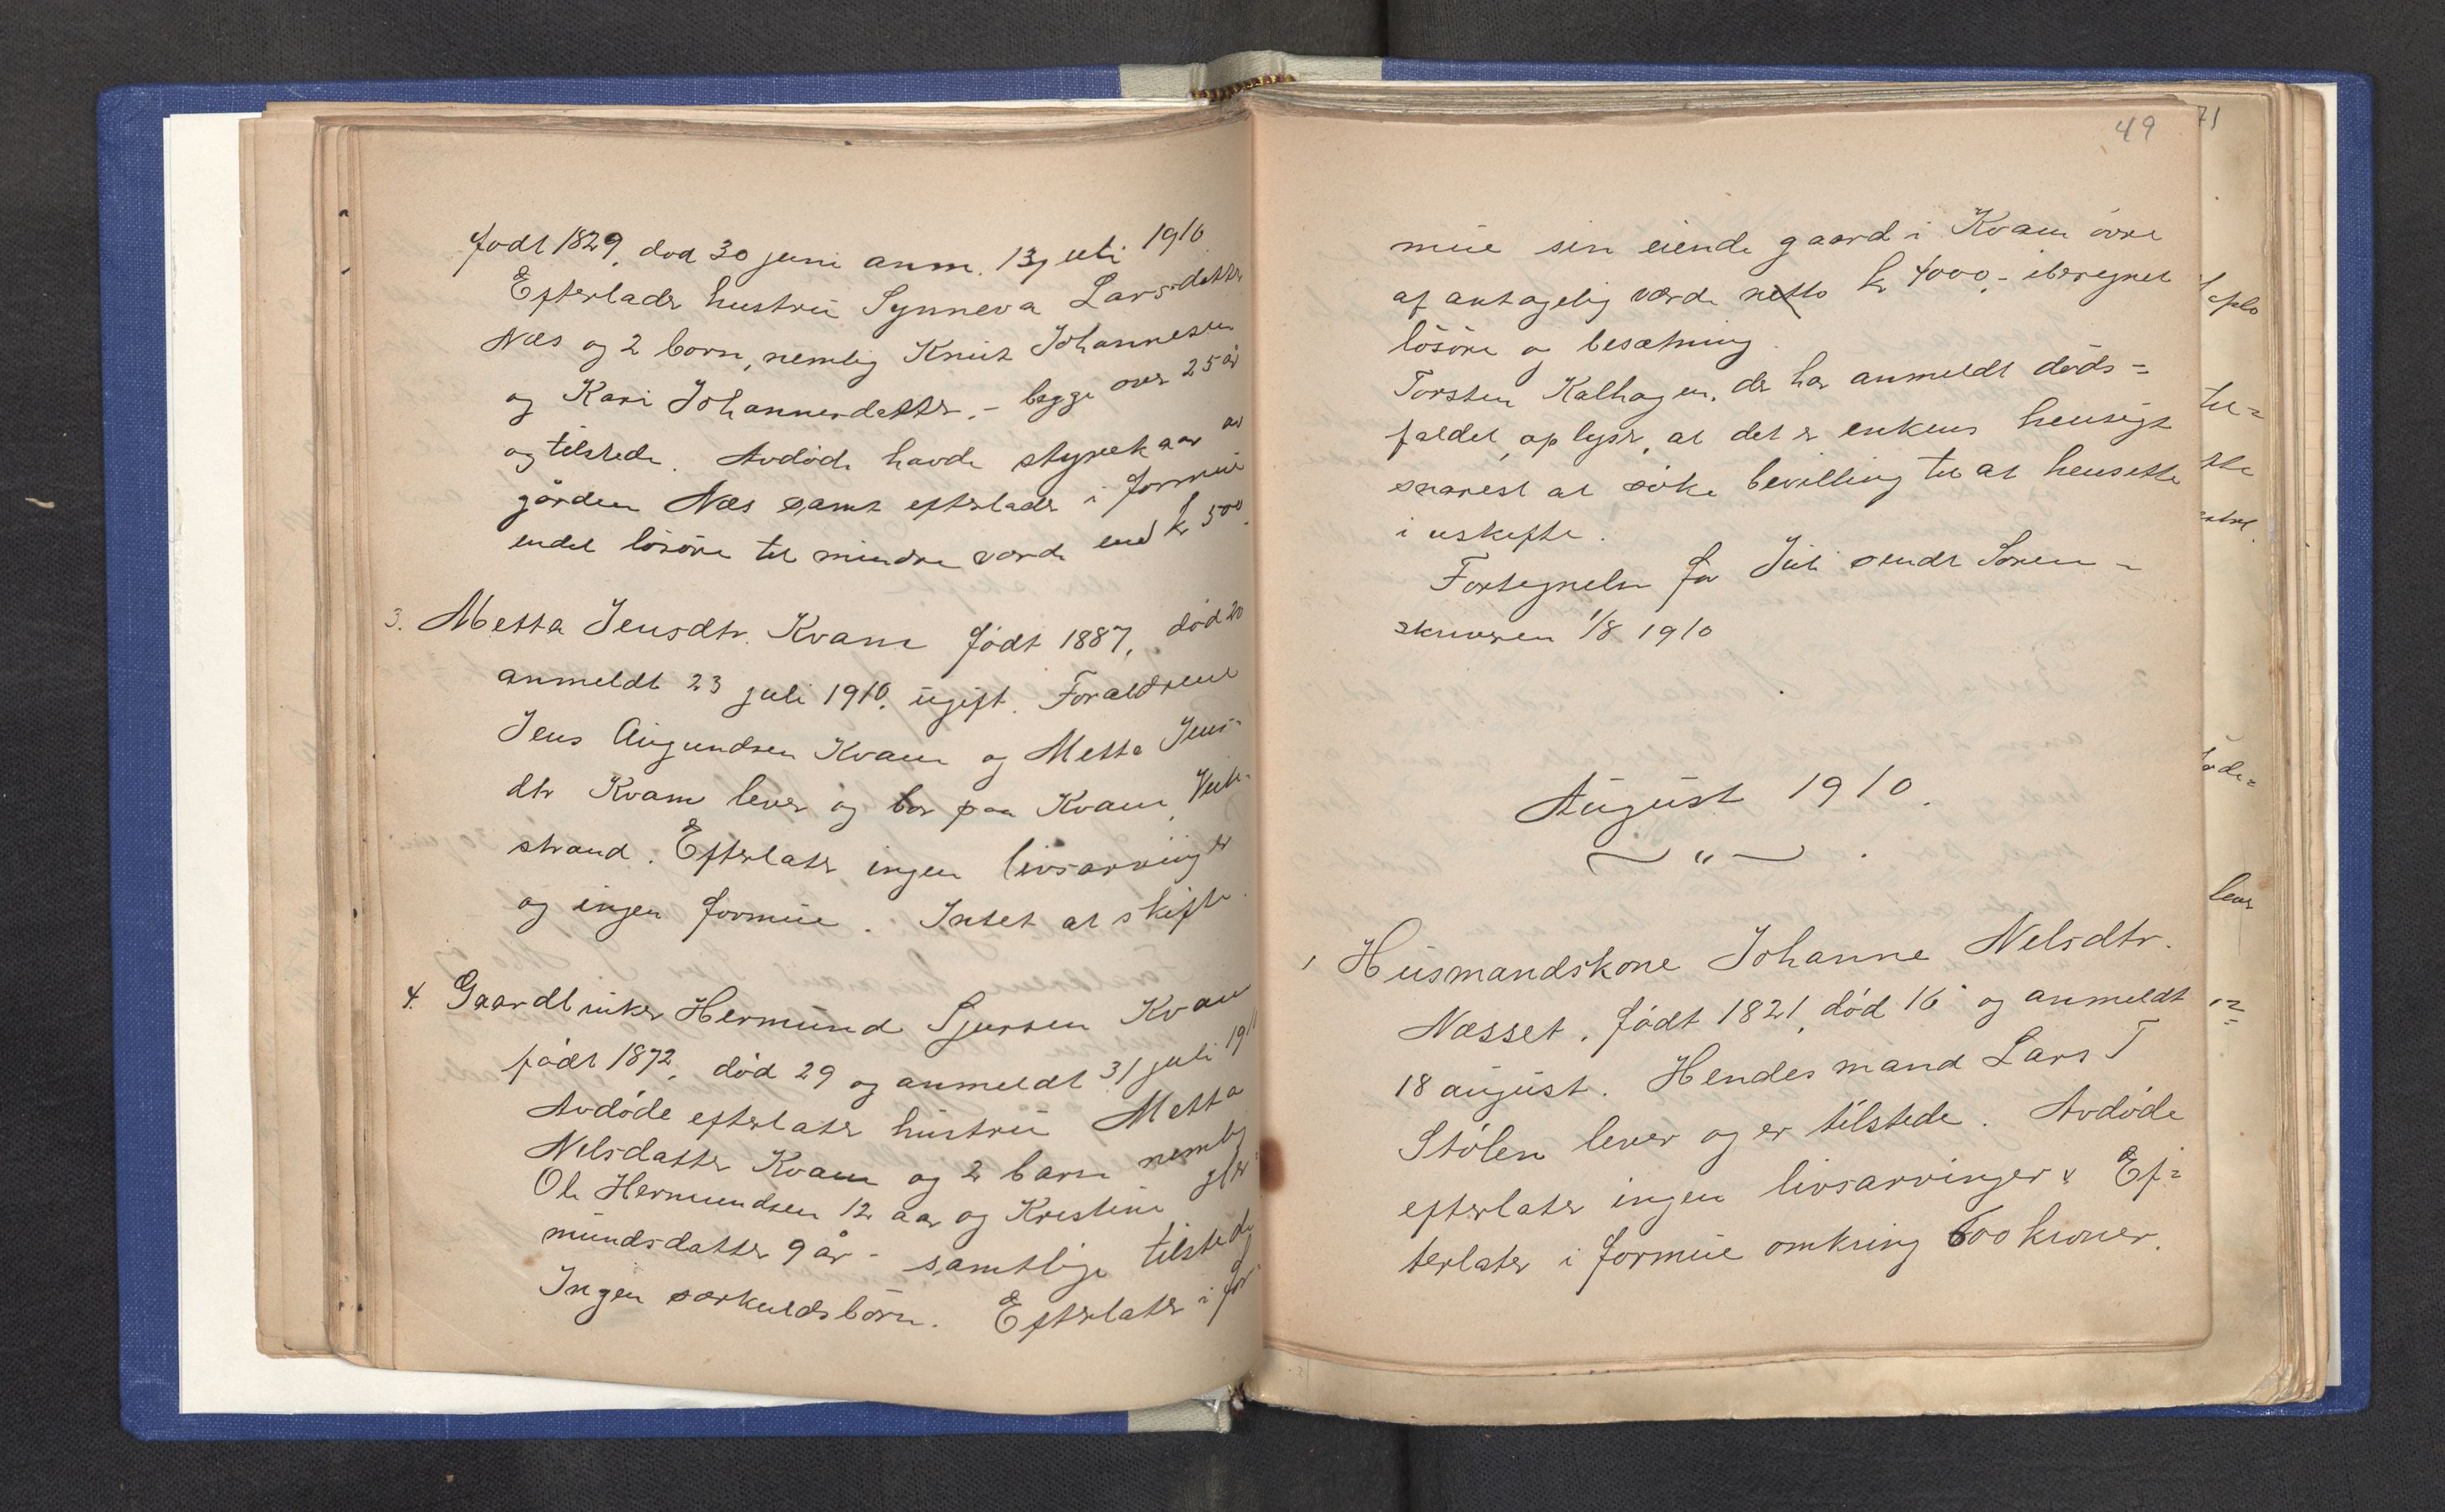 født 1829, død 30 juni anm. 13 juli 1910
Efterlader hustru Synneva Larsdatter
Næs og 2 børn, nemlig Knut Johannesen
og Kari Johannesdatter. - begge over 25 år
og tilstede. Avdøde havde
gården Næs samt efterlader i formue
endel løsøre til mindre værdi end kr 500.
3. Metta Jensdtr. Kvam født 1887, død 20
anmeldt 23 juli 1910. ugift. Forældrene
Jens Augundsen Kvam og Metta Jens-
dtr Kvam lever og bor paa Kvam, Veit-
strand. Efterlater ingen livsarvinger
og ingen formue. Intet at skifte.
4. Gaardbruker Hermund Sjursen Kvam
født 1872, død 29 og anmeldt 31 juli 191
Avdøde efterlater hustru Metta
Nelsdatter Kvam og 2 barn nemlig
Ole Hermundsen 12 aar og Kristine
mundsdatter 9 år - samtlige tilstede
Ingen særkuldsbørn. Efterlater i for-
49
mue sin eiende gaard i Kvam övre
af antagelig værdi netto kr 4000,- iberegnet
løsøre og besætning.
Torsten Kalhagen, der har anmeldt døds=
faldet, oplyser, at det er enkens hensigt
snarest at søke bevilling til at hensitte
i uskifte.
Fortegnelse for Juli sendt Soren-
skriveren 1/8 1910
August 1910.
~ " ~ .
1 Husmandskone Johanne Nelsdtr.
Næsset. født 1821, død 16 og anmeldt
18 august. Hendes mand Lars T
Stølen lever og er tilstede. Avdøde
efterlater ingen livsarvinger. Ef=
terlater i formue omkring 600 kroner.
71
oplo
til=
lever